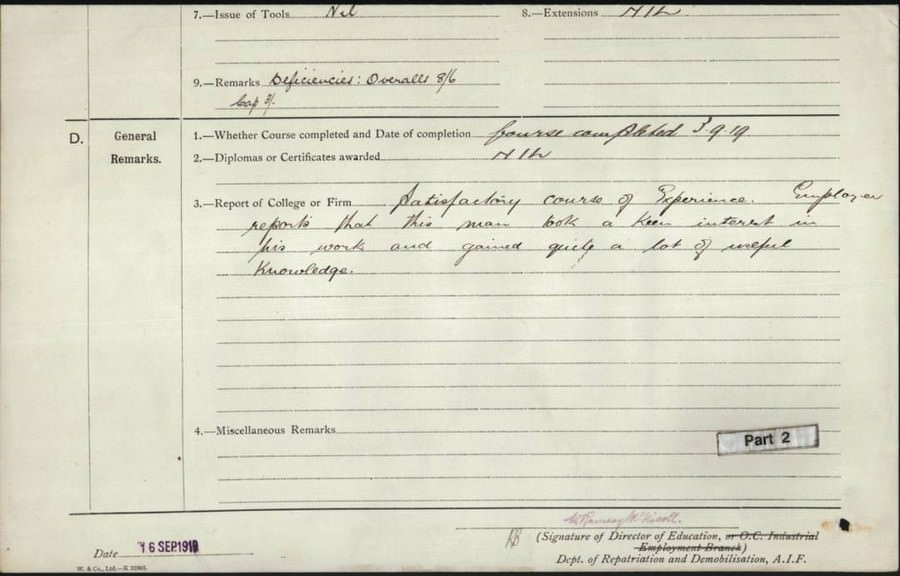 7.—Issue of Tools Nil 8.—Extensions Nil
9.—Remarks Deficiencies: Overalls 8/6
Cap 3/.
D. General Remarks. 1.—Whether Course completed and Date of completion Course completed 3.9.19
2.—Diplomas or Certificates awarded Nil
3.—Report of College or Firm Satisfactory course of Experience. Employer
reports that this man took a keen interest in
his work and gained quite a lot of useful
Knowledge.
4.—Miscellaneous Remarks
Part 2
(Signature of Director of Education, or O.C. Industrial
Employment Branch)
Dept. of Repatriation and Demobilisation, A.I.F.
Date 16 SEP 1919
W. & Co., Ltd.—K